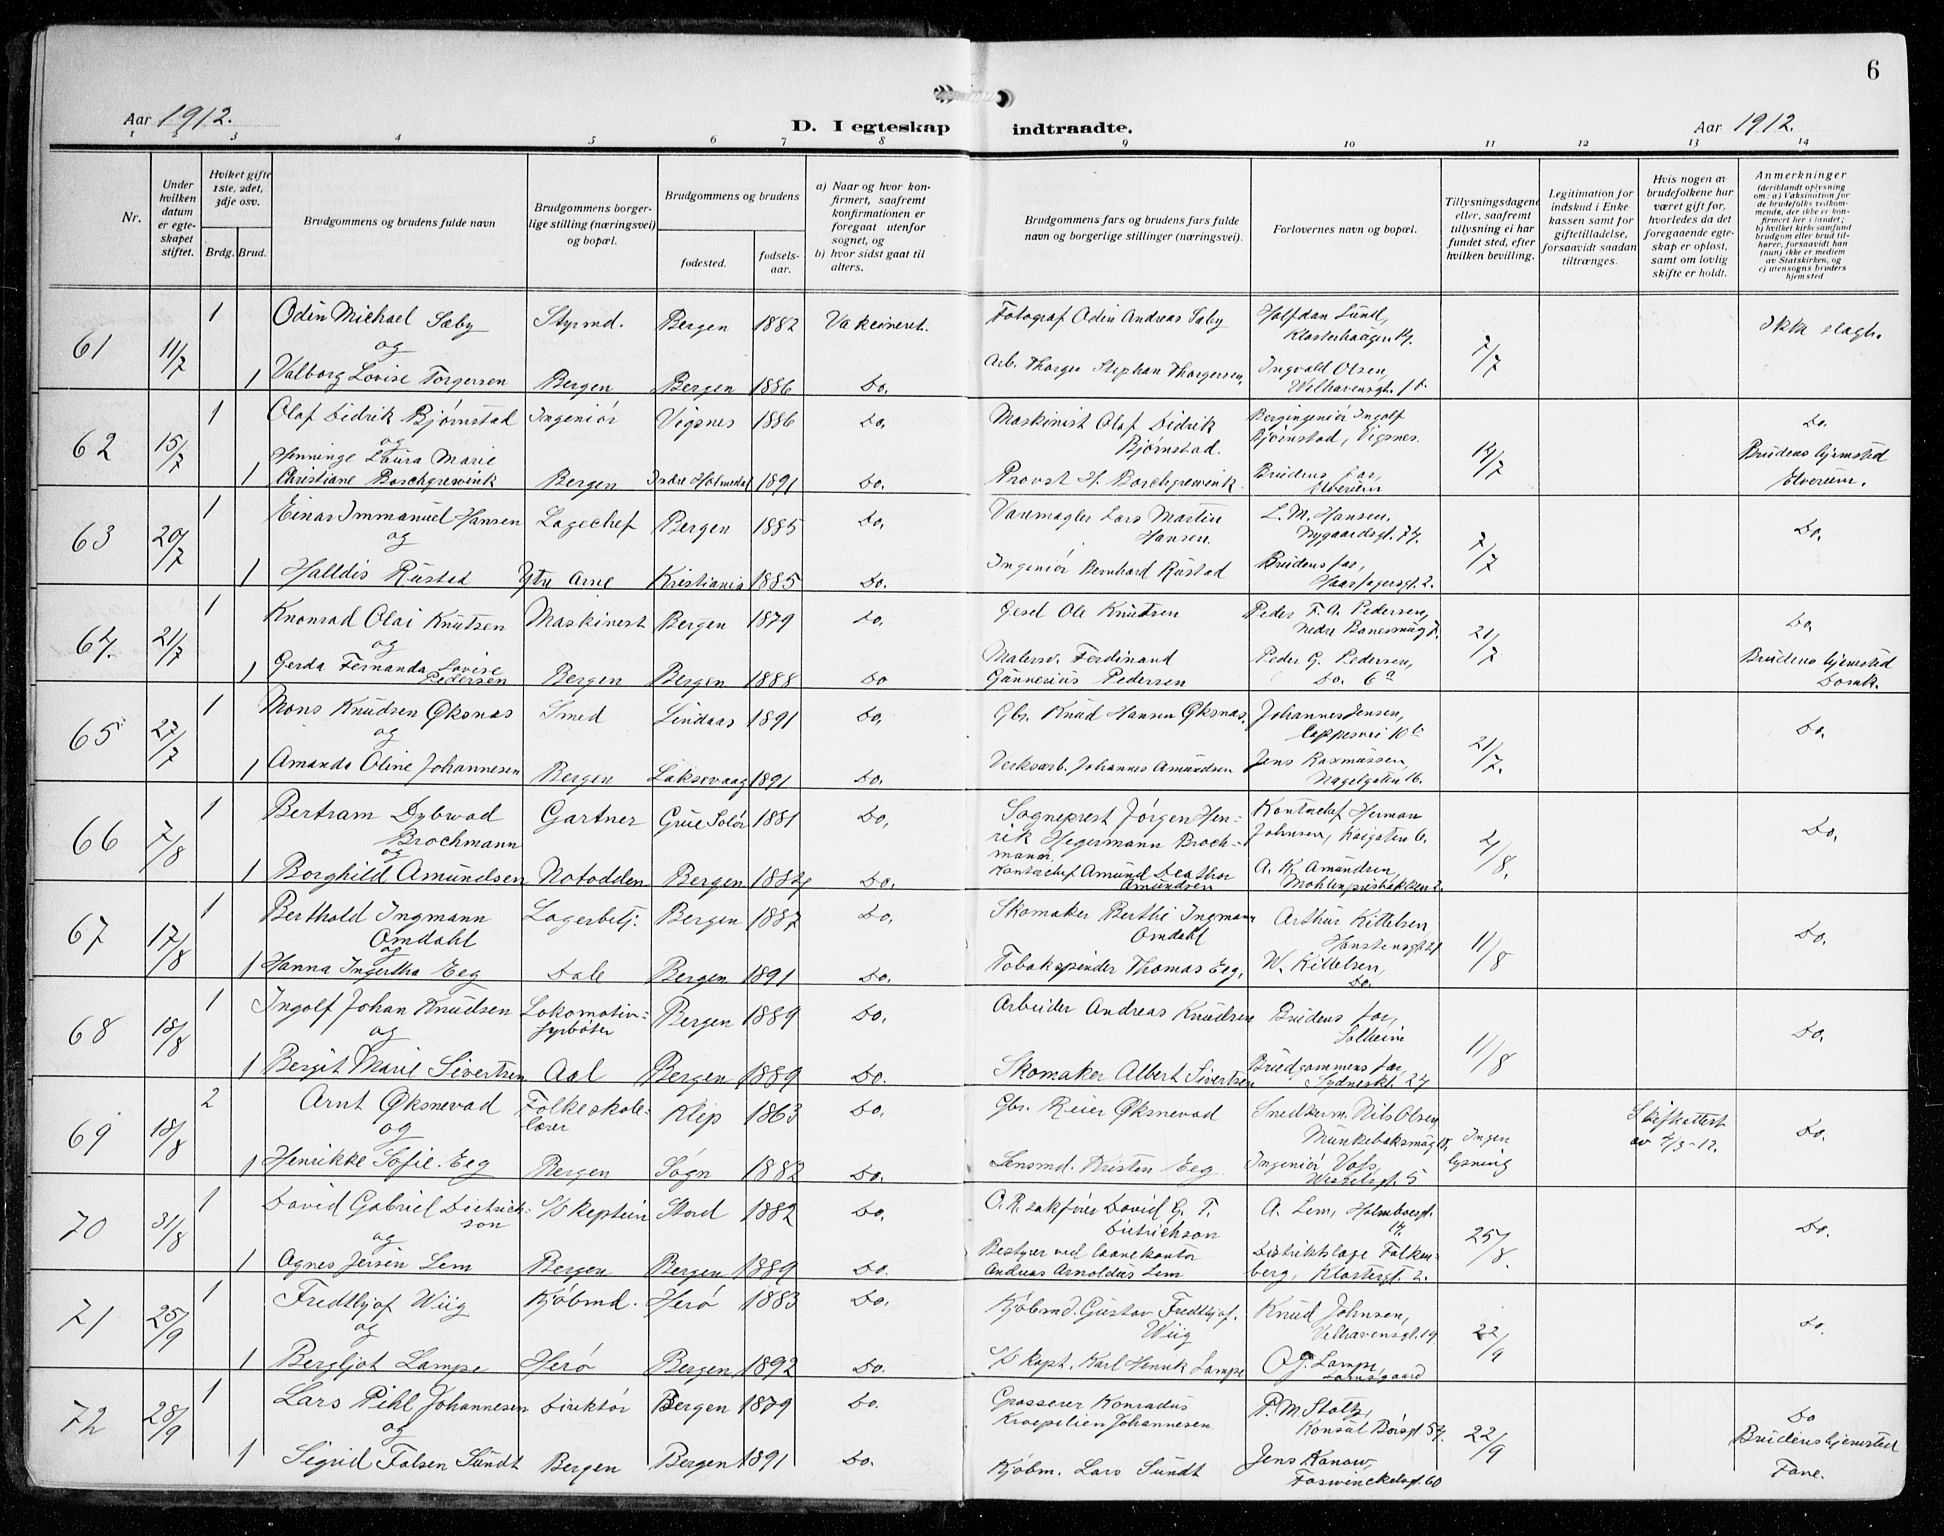 6
Aar 1912.
D. I egteskap indtraadte.
Aar 1912.
1 2 3 4 5 6 7 8 9 10 11 12 13 14
Nr.
Under hvilken datum er egteskapet stiftet.
Hvilket gifte 1ste, 2det, 3dje osv.
Brdg. Brud.
Brudgommens og brudens fulde navn
Brudgommens borgerlige stilling (næringsvei) og bopæl.
Brudgommens og brudens
fødested.
fødselsaar.
a) Naar og hvor konfirmert, saafremt konfirmationen er foregaat utenfor sognet, og
b) hvor sidst gaat til alters.
Brudgommens fars og brudens fars fulde navn og borgerlige stillinger (næringsvei).
Forlovernes navn og bopæl.
Tillysningsdagene eller, saafremt tillysning ei har fundet sted, efter hvilken bevilling.
Legitimation for indskud i Enkekassen samt for giftetilladelse, forsaavidt saadan tiltrænges.
Hvis nogen av brudefolkene har været gift før, hvorledes da det foregaaende egteskap er opløst, samt om lovlig skifte er holdt.
Anmerkninger
(deriblandt oplysning om: a) Vaksination for de brudefolks vedkommende, der ikke er konfirmert her i landet; b) hvilket kirkesamfund brudgom eller brud tilhører, forsaavidt han (hun) ikke er medlem av Statskirken, og c) utensogns bruders hjemsted
61 11/7 1 Odin Michael Sæby Styrmd. Bergen 1882 Vakcineret. Fotograf Odin Andreas Sæby Halfdan Lund, Klosterhaugen 14. 7/7 Ikke slegt.
og
1 Valborg Lovise Torgersen Bergen Bergen 1886 Do. Arb. Thorger Stephan Thorgersen, Ingvald Olsen, Welhavensgt. 1 b.
62 15/7 1 Olaf Didrik Bjørnstad Ingeniør Vigsnes 1886 Do. Maskinist Olaf Didrik Bjørnstad. Bergingeniør Ingolf Bjørnstad, Vigsnes. 14/7 Do.
og
1 Henninge Laura Marie Christiane Borchgrewink Bergen Indre Holmedal 1891 Do. Provst H. Borchgrewink. Brudens far, Elverum Brudens hjemsted Elverum.
63 20/7 1 Einar Immanuel Hansen Lagerchef Bergen 1885 Do. Varemægler Lars Martin Hansen. L. M. Hansen, Nygaardsgt. 74. 7/7 Do.
og
1 Halldis Rustad Ytr Arne Kristiania 1885 Do. Ingeniør Bernhard Rustad Brudens far, Haarfagersgt. 2.
64. 21/7 1 Knonrad Olai Knutsen Maskinest Bergen 1879 Do. Gesel Ole Knutsen Peder F. A. Pedersen, Nedre Banesmug 7. 21/7 Do.
og
1 Gerda Fernanda Lovise Pedersen Bergen Bergen 1888 Do Malersv. Ferdinand Gunnerius Pedersen Peder G. Pedersen, Do. 6a Brudens hjemsted Domk.
65 27/7 1 Mons Knudsen Øksnæs Smed Lindaas 1891 Do. Gbr. Knud Hansen Øksnæs. Johannes Jensen, Cappesvei 10 b 21/7. Do.
og
1 Amanda Oline Johannesen Bergen Laksevaag 1891 Do. Verksarb. Johannes Amundsen Jens Rasmussen, Nagelgaten 16.
66 7/8 1 Bertram Dybwad Brochmann Gartner Grue Solør 1881 Do, Sogneprest Jørgen Henrik Hegermann Brochmann Kontorchef Herman Johnsen, Kaigaten 6. 4/8. Do.
og
1 Borghild Amundsen Notodden Bergen 1884 Do. Kontorchef Amund Amundsen A. K. Amundsen, Møhlenprisbakken 2.
67 17/8 1 Berthold Ingmann Omdahl Lagerbetj: Bergen 1887 Do. Skomaker Berthi Ingmann Omdahl Arthur Kittelsen, Hansteensgt. 21 11/8 Do.
og
1 Hanna Ingertha Eeg Dale Bergen 1891 Do. Tobakspinder Thomas Eeg. W. Kittelsen, Do.
68 18/8 1 Ingolf Johan Knudsen Lokomotivfyrbøter Bergen 1889 Do. Arbeider Andreas Knudsen Brudens far, Solheim 11/8 Do.
og
1 Bergit Marie Sivertsen Aal Bergen 1889 Do. Skomaker Albert Sivertsen Brudgommens far, Sydneskl. 27
69 18/8 2 Arnt Øksnevad Folkeskolelærer Klep 1863 Do. Gbr. Reier Øksnevad Snedkerm. Nils Olsen, Munkebæksmug 18. Ingen lysning Skifteattest av 4/3-12. Do.
og
1 Henrikke Sofie Eeg Bergen Sogn 1882 Do. Lensmd. Kristen Eeg Ingeniør Voss, Wesselsgt. 5
70 31/8 1 David Gabriel Dietrichson S/S kaptein Stord 1882 Do. O.R. sakfører David G. T. Dietrichson A. Lem, Holmboesgt. 14. 25/8. Do.
og
1 Agnes Jersin Lem Bergen Bergen 1889 Do. Bestyrer ved laanekontor Andreas Arnoldus Lem Distriktslæge Falkenberg, Klostergt. 2.
71 25/9 1 Fredthjof Wiig Kjøbmd. Herø 1883 Do. Kjøbmd. Gustav Fredthjof Wiig Knud Johnsen, Velhavensgt. 19 22/9 Do.
og
1 Bergljot Lampe Herø Bergen 1892 Do. S/S kapt. Karl Henrik Lampe O. J. Lampe,
72 28/9 1 Lars Pihl Johannesen Direktør Bergen 1879 Do. Grosserer Konradus Kroepelien Johannesen P. M. Stoltz, Konsul Børsgt. 54. 22/9 Do
og
1 Sigrid Falsen Sundt Bergen Bergen 1891 Do. Kjøbm. Lars Sundt Jens Kanow, Fosswinckelsgt. 60 Brudens hjemsted Fane.